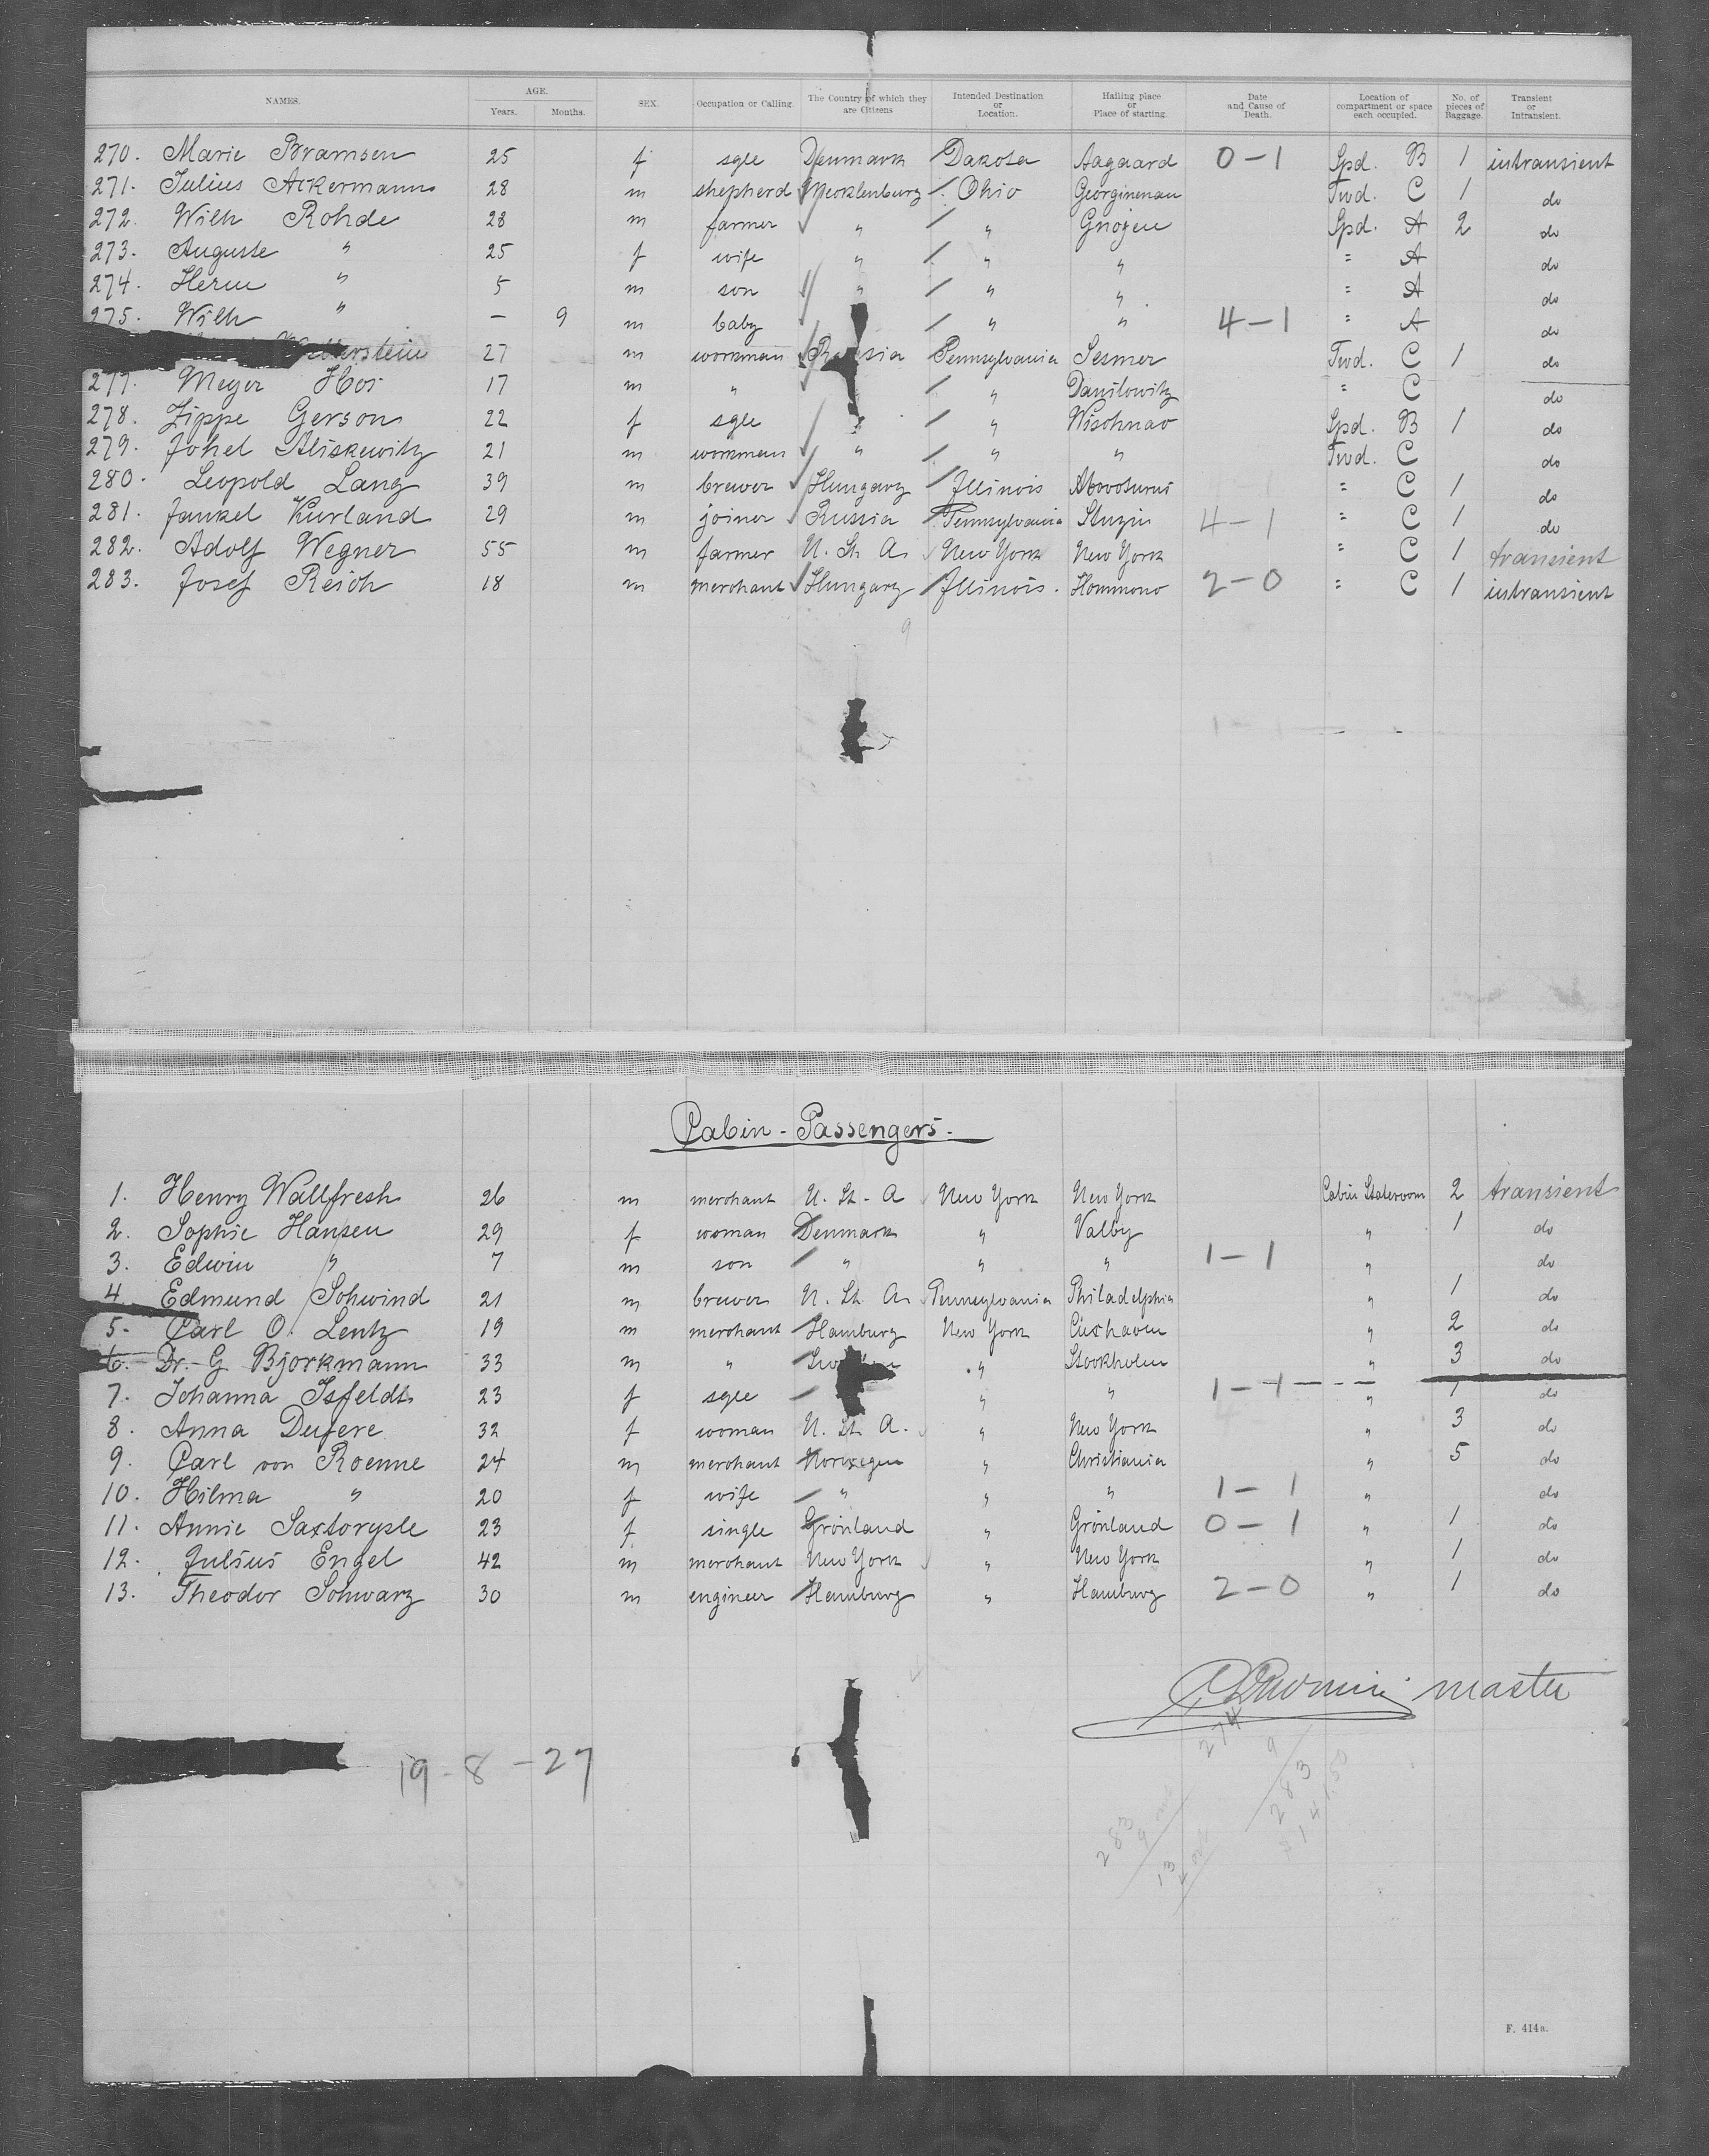 NAMES. AGE. Years. Months. SEX. Occupation or Calling. The Country of which they are Citizens Intended Destination or Location. Hailing place or Place of starting. Date and Cause of Death. Location of compartment or space each occupied. No. of pieces of Baggage. Transient or Intransient.
270. Marie Bramsen 25 f sgle Denmark Dakota Aagaard 0-1 Spd. B 1 intransient
271. Julius Ackermann 28 m shepherd Mecklenburg Ohio Georginenau Twd. C 1 do
272. Wilh Rohde 28 m farmer " " Gnojen Spd. A 2 do
273. Auguste " 25 f wife " " " " A do
274. Herm " 5 m son " " " " A do
275. Wilh " - 9 m baby " " 4-1 " A do
27 m workman Russia Pennsylvania Sesmer Twd. C 1 do
277. Meyer Hos 17 m " " Danilowitz " C do
278. Zippe Gerson 22 f sgle " " Wischnao Spd. B 1 do
279. Johel Aliskewitz 21 m workman " " " Twd. C do
280. Leopold Lang 39 m brewer Hungary Illinois " C 1 do
281. Jankel Kurland 29 m joiner Russia Pennsylvania 4-1 " C 1 do
282. Adolf Wegner 55 m farmer U. St. A. New York New York " C 1 transient
283. Josef Reich 18 m merchant Hungary Illinois. Hommono 2-0 " C 1 intransient
9
Cabin-Passengers.
1. Henry Wallfresh 26 m merchant U. St. A New York New York Cabin Stateroom 2 transient
2. Sophie Hansen 29 f woman Denmark " Valby " 1 do
3. Edwin " 7 m son " " " 1-1 " do
4. Edmund Schwind 21 m brewer U. St. A. Pennsylvania Philadelphia " 1 do
5. Carl O. Lentz 19 m merchant Hamburg New York Cuxhaven " 2 do
6. Dr. G Bjorkmann 33 m " " Stockholm " 3 do
7. Johanna Isfeldt 23 f sgle " " 1-1 " 1 do
8. Anna Dufere 32 f woman U. St. A. " New York " 3 do
9. Carl von Roenne 24 m merchant Norwegen " Christiania " 5 do
10. Hilma " 20 f wife " " " 1-1 " do
11. Annie Saxtorpsle 23 f single Grönland " Grönland 0-1 " 1 do
12. Julius Engel 42 m merchant New York " New York " 1 do
13. Theodor Schwarz 30 m engineer Hamburg " Hamburg 2-0 " 1 do
master
19-8-27
274
9
283
283
9
13
F. 414a.